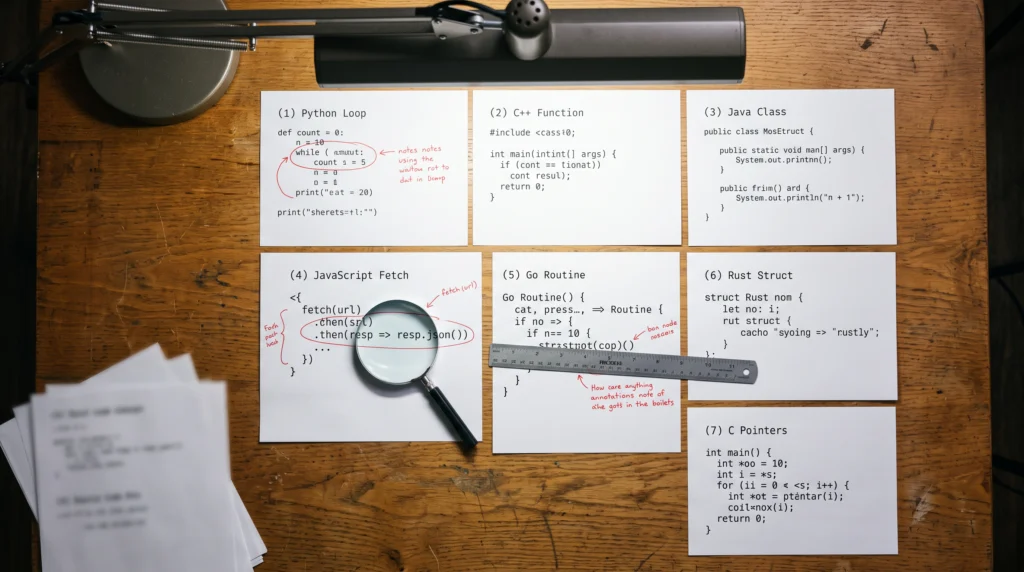 (1) Python Loop
def count = 0:
n = 10
while ( amout:
count s = 5
print("eat = 20)
print("sherets=tl:"")
notes notes
using the
not to
in
(2) C++ Function
#include <cass!0;
int main(intint[] args) {
if (cont == tionat))
cont resul);
return 0;
}
(3) Java Class
public class MosEtruct {
public static void man[] args) {
System.out.printnn();
}
public frim() ard {
System.out.println("n + 1");
}
}
(4) JavaScript Fetch
<{
fetch(url)
.then(srl)
.then(resp => resp.json())
...
})
}
fetch(url)
(5) Go Routine
Go Routine() {
cat, press…, => Routine {
if no => {
if n== 10 {
strastnot(cop)()
}
}
ban node
How care anything
annotations note of
the gott in the
(6) Rust Struct
struct Rust nom {
let no: i;
rut struct {
cacho "syoing => "rustly";
};
(7) C Pointers
int main() {
int *oo = 10;
int i = *s;
for (ii = 0 < <s; i++) {
int *ot = ptántar(i);
coil=nox(i);
return 0;
}